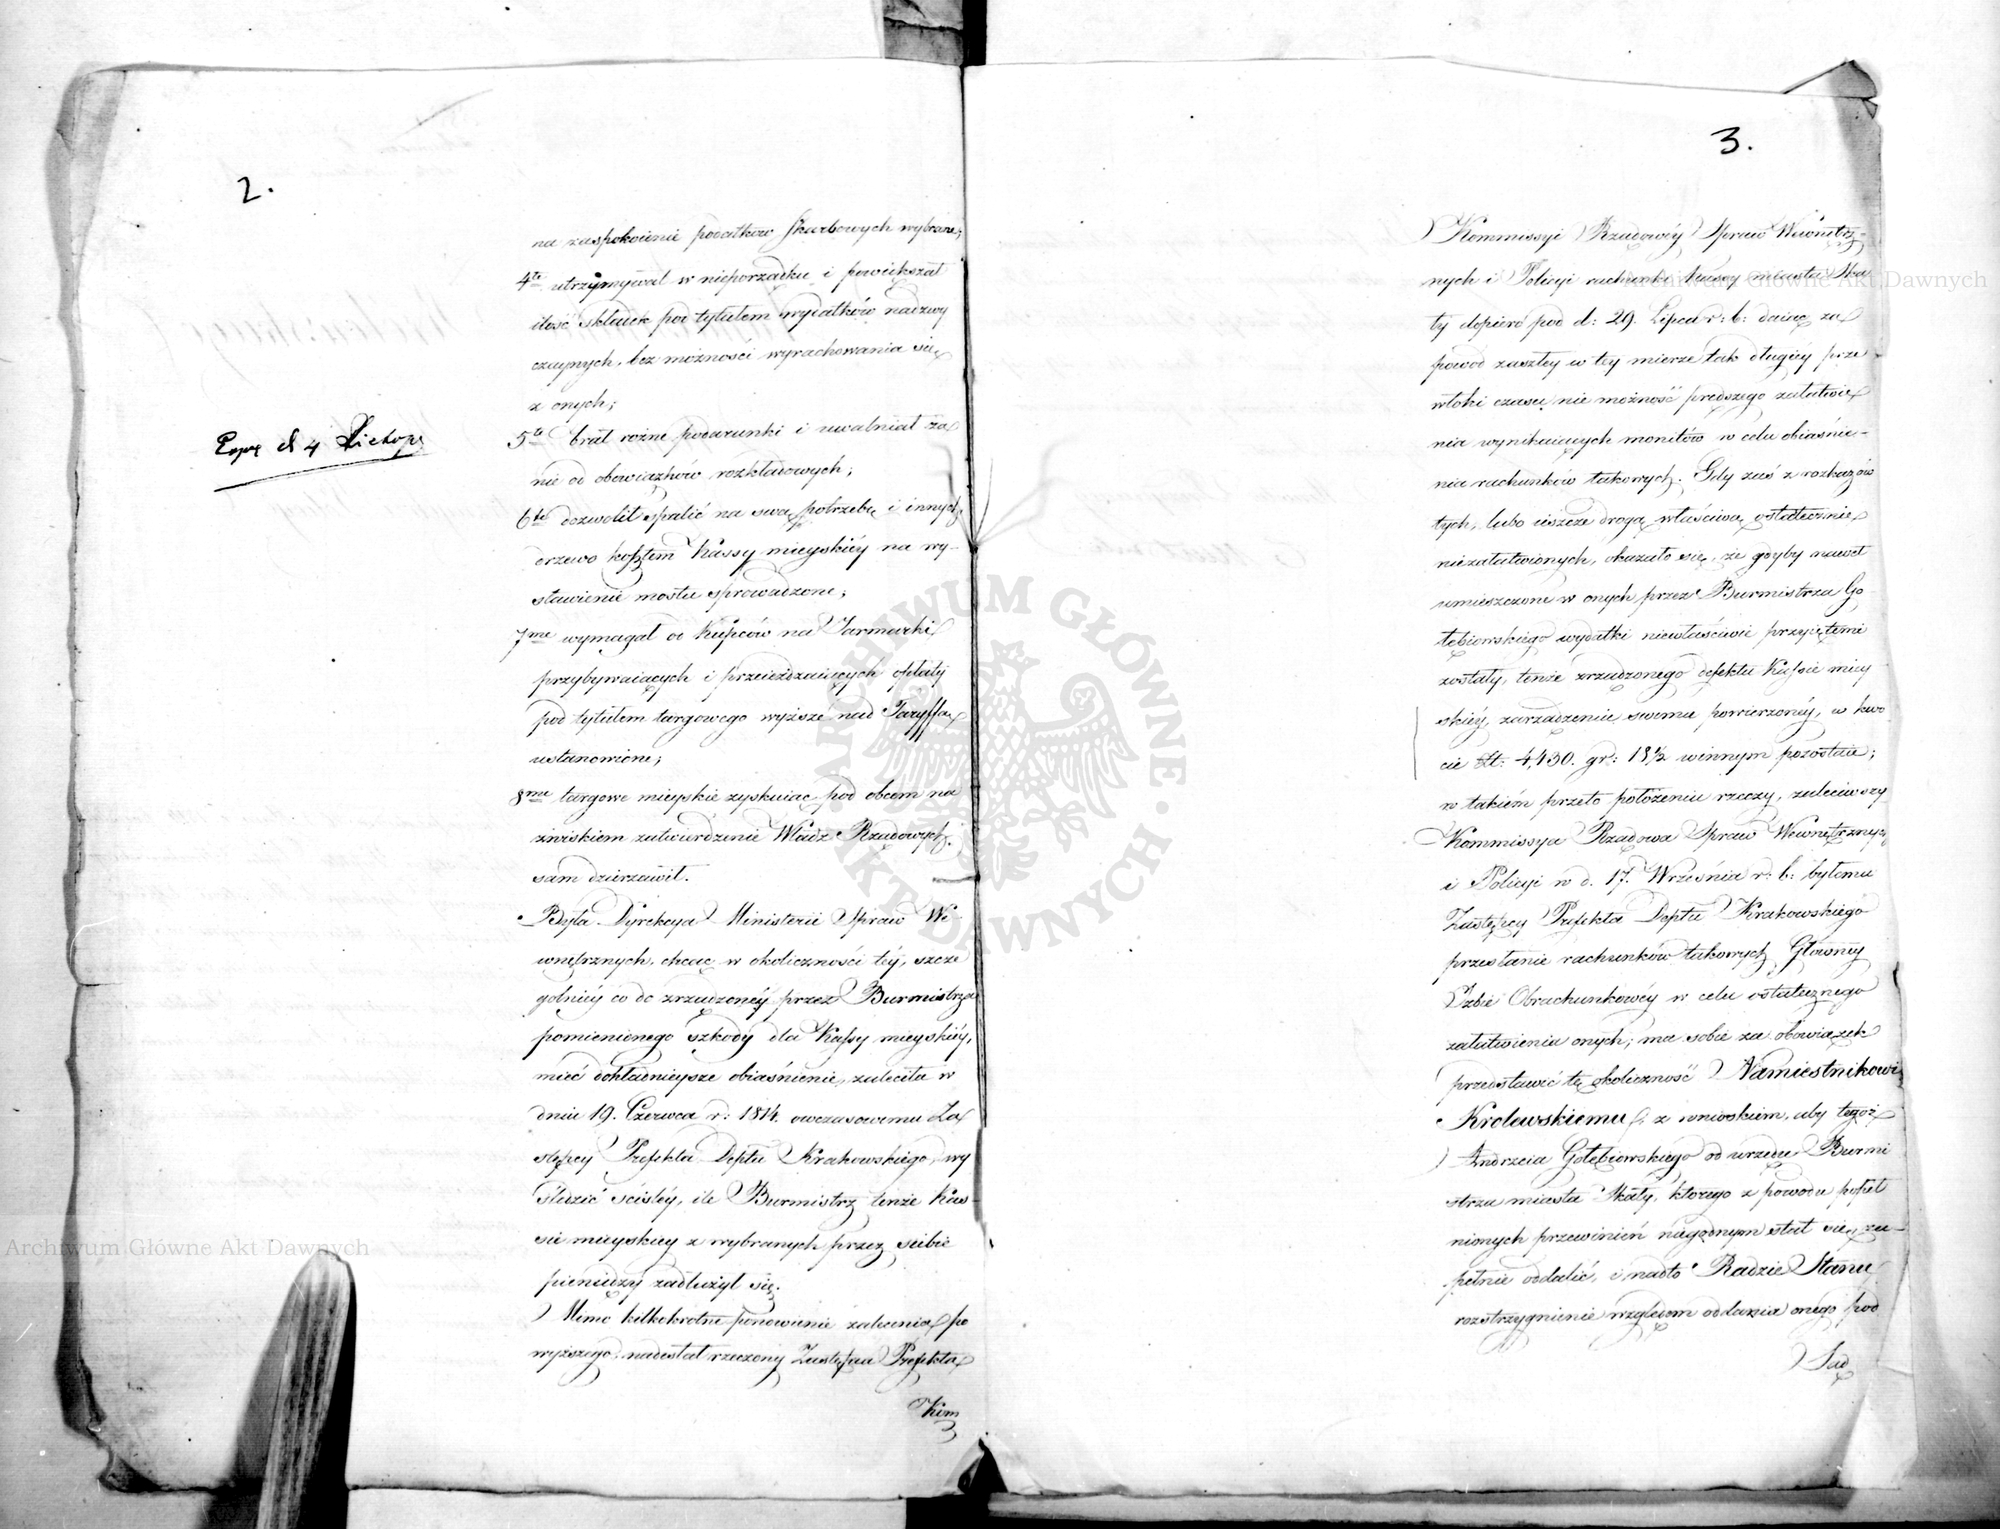 2.
na zaspokoienie podatków skarbowych wybrane;
4te utrzymywał w nieporządku i powiększał
ilość składek pod tytułem wydatków nadzwy
czaynych, bez możności wyrachowania się
z onych;
5te brał rożne podarunki i uwalniał za
nie od obowiązków rozkładowych;
6te dozwolił spalić na swą potrzebę i innych
drzewo kosztem Kassy mieyskiéy na wy-
stawienie mostu sprowadzone;
7me wymagał od Kupców na Jarmarki
przybywaiących i przeieżdzaiących opłaty
pod tytułem targowego wyższe nad Taryffą
ustanowione;
8me targowe mieyskie zyskuiąc pod obcem na
zwiskiem zatwierdzenie Władz Rządowych,
sam dzierzawił.
Była Dyrekcya Ministerii Spraw We-
wnętrznych, chcąc w okoliczności téy, szcze
golniéy co do zrządzonéy przez Burmistrza
pomienionego szkody dla Kassy mieyskiéy,
mieć dokładnieysze obiaśnienie, zaleciła w
dniu 19. Czerwca r: 1814. owczasowemu Za
stępcy Prefekta Deptu Krakowskiego, wy
śledzić ściśléy, ile Burmistrz tenże Kas-
sie mieyskiey z wybranych przez siebie
pieniędzy zadłużył się.
Mimo kilkokrotne ponowienie zalecenia po
wyższego, nadesłał rzeczony Zastępca Prefekta
Kom
3.
Kommissyi Rządowéy Spraw Wewnętrz-
nych i Policyi rachunki Kassy miasta Ska
ły dopiero pod d: 29. Lipca r: b: daiąc za
powód zaszłey w tey mierze tak długiéy prze
włoki czasu nie możność prędszego załatwie
nia wynikaiących monitów w celu obiaśnie-
nia rachunków takowych. Gdy zaś z
tych, lubo ieszcze drogą właściwą ostatecznie
niezałatwionych, okazało się, że gdyby nawet
umieszczone w onych przez Burmistrza Go
łębiowskiego wydatki niewłaściwie przyiętemi
zostały, tenże zrządzonego defektu Kassie miey
skiéy, zarządzeniu swemu powierzonéy, w kwo
cie Zł: 4,430. gr: 18½ winnym pozostaie;
w takiém przeto położeniu rzeczy, zaleciwszy
Kommissya Rządowa Spraw Wewnętrznych
i Policyi w d. 17. Września r: b: byłemu
Zastępcy Prefekta Deptu Krakowskiego
przesłanie rachunków takowych Głowney
Izbie Obrachunkowéy w celu ostatecznego
załatwienia onych; ma sobie za obowiązek
przedstawić tę okoliczność Namiestnikowi
Krolewskiemu, z wnioskiem, aby tegoż
Andrzeia Gołębiowskiego od urzędu Burmi
strza miasta Skały, ktorego z powodu popeł
nionych przewinień niegodnym stał się, zu-
pełnie oddalić, i nadto Radzie Stanu
rozstrzygnienie względem oddania onego pod
Sąd
Archiwum Główne Akt Dawnych
Archiwum Główne Akt Dawnych
ARCHIWUM GŁÓWNE · AKT DAWNYCH ·